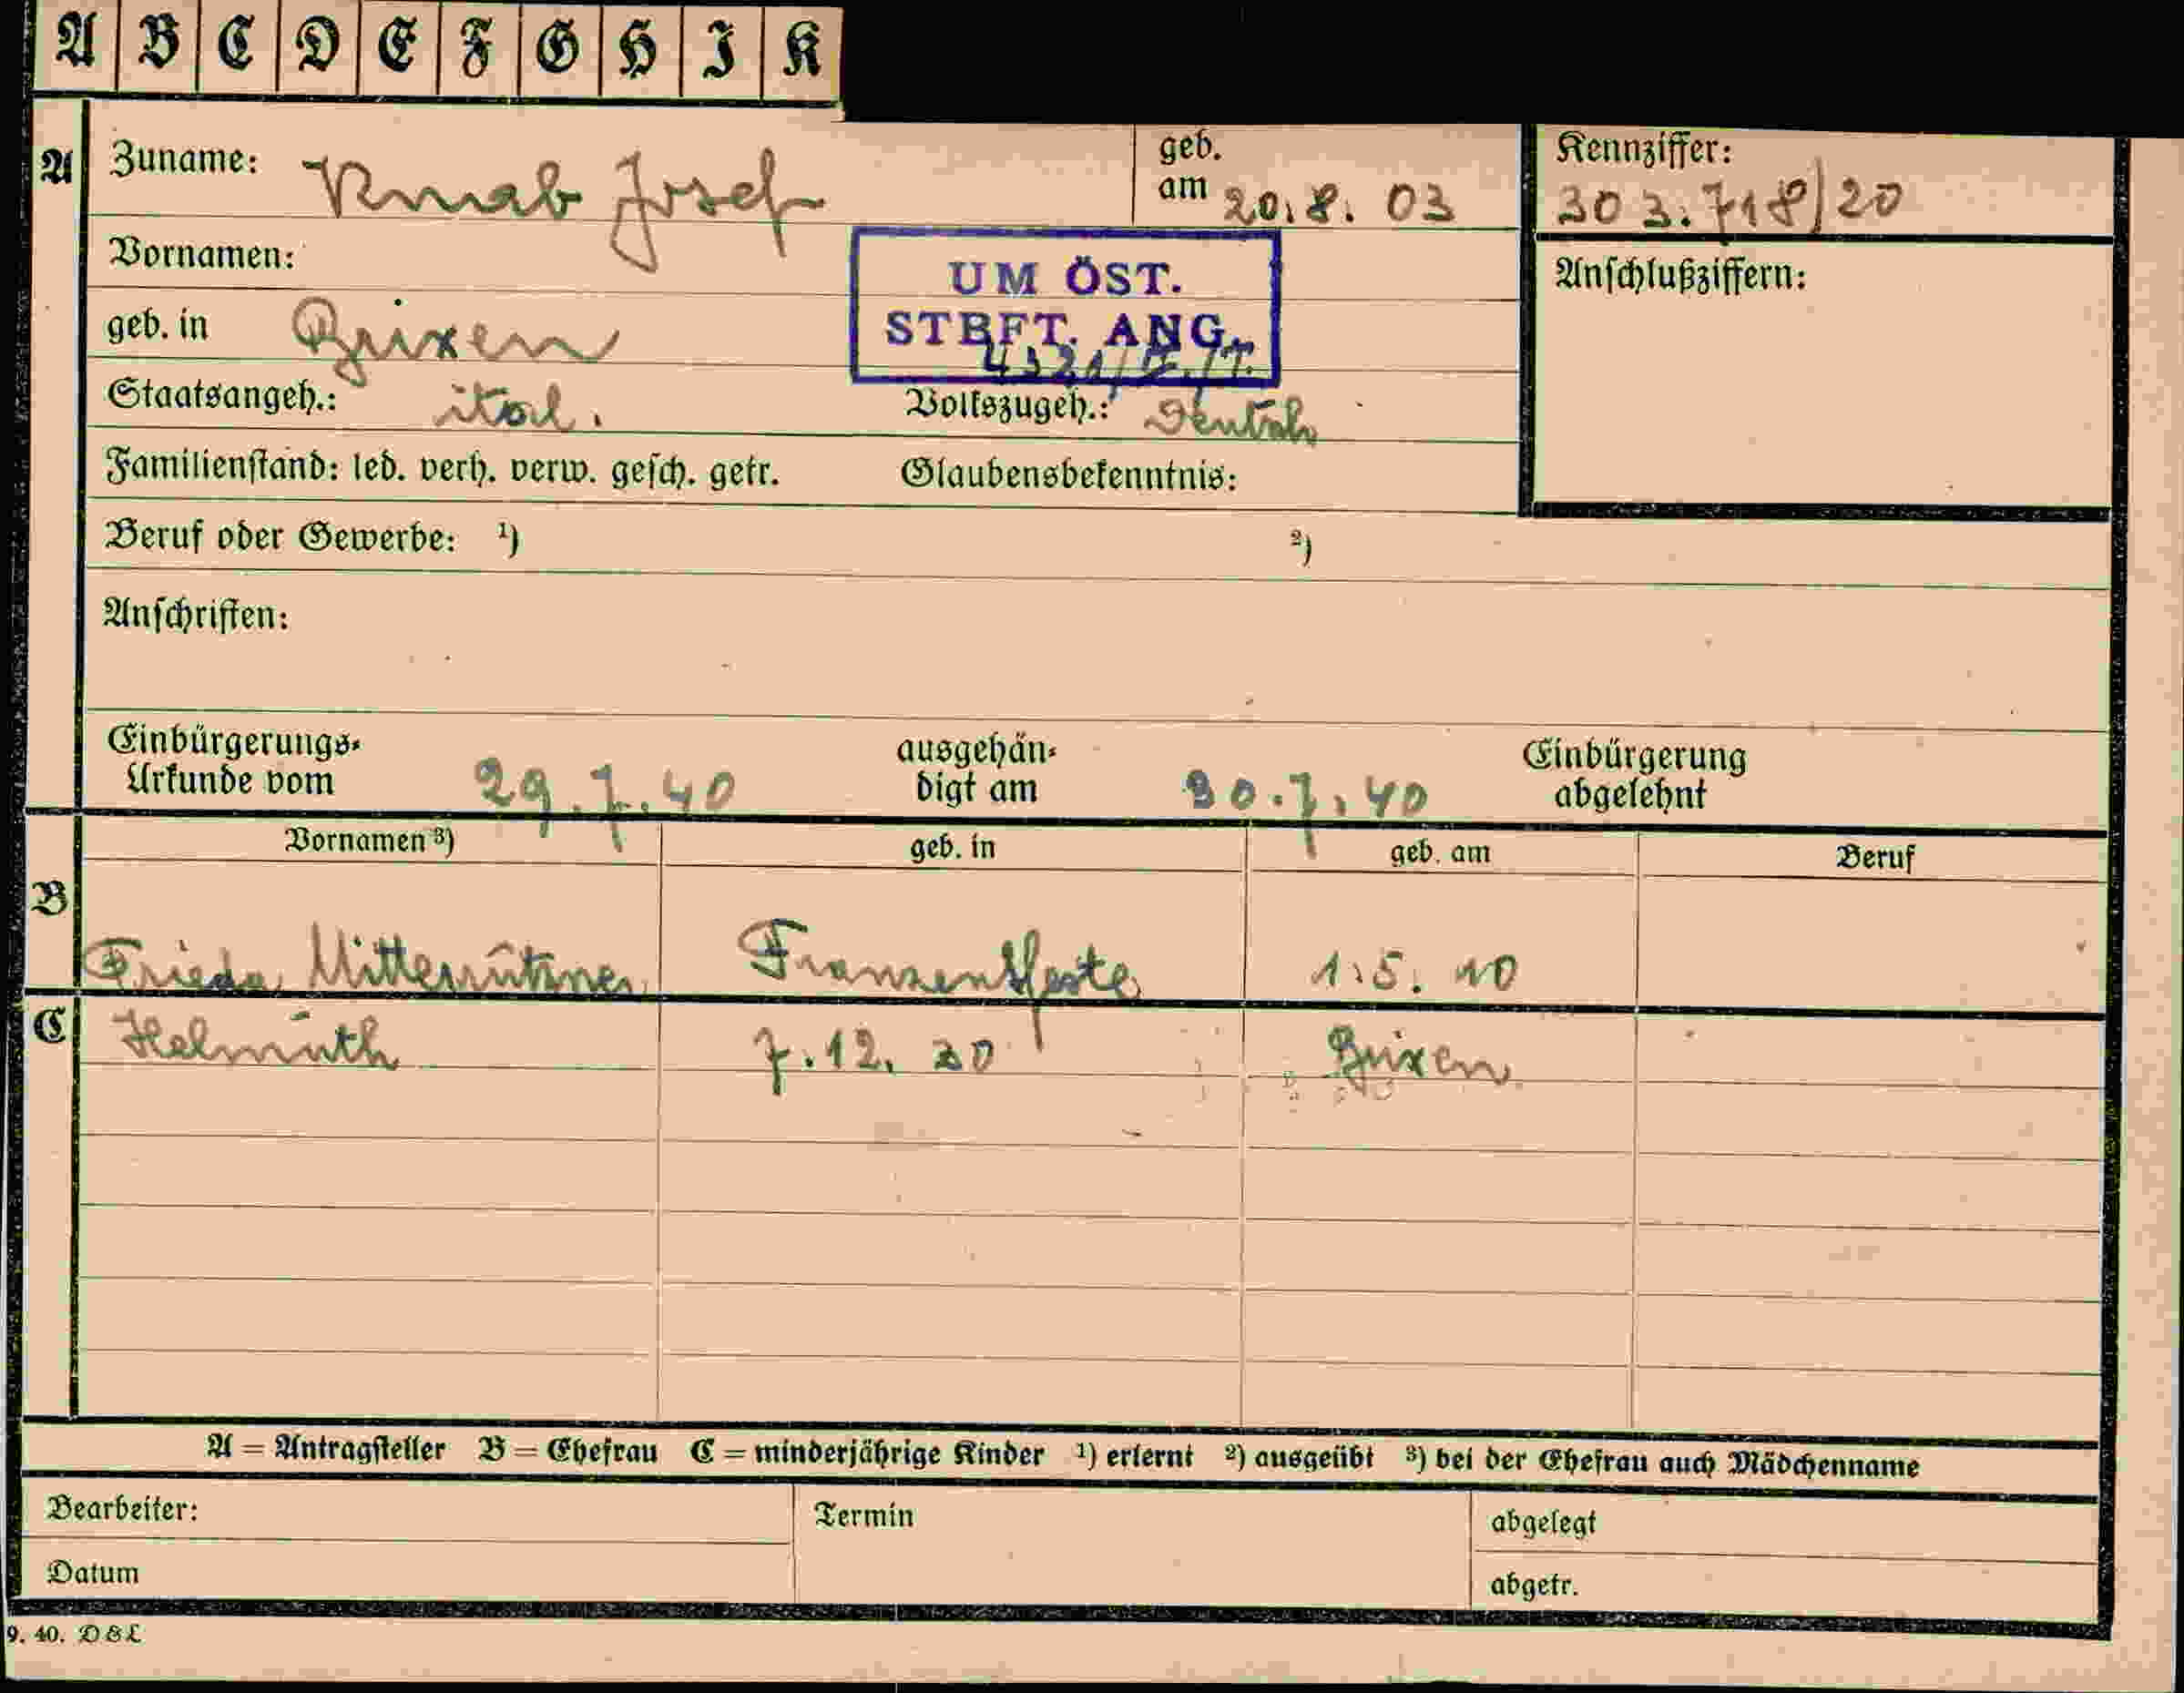 A B C D E F G H I K
A Zuname: Knab Josef geb. am 20.8.03 Kennziffer: 303.718/20
Vornamen:
UM ÖST.
STBFT. ANG.
4321/II./T.
Anschlußziffern:
geb. in Brixen
Staatsangeh.: ital. Volkszugeh.: Deutsch
Familienstand: led. verh. verw. gesch. getr. Glaubensbekenntnis:
Beruf oder Gewerbe: ¹) ²)
Anschriften:
Einbürgerungs-
Urkunde vom 29.7.40
ausgehän-
digt am 30.7.40
Einbürgerung
abgelehnt
Vornamen ³) geb. in geb. am Beruf
B Frieda Mitterrützner Franzensfeste 1.5.10
C Helmuth 7.12.30 Brixen
A = Antragsteller B = Ehefrau C = minderjährige Kinder ¹) erlernt ²) ausgeübt ³) bei der Ehefrau auch Mädchenname
Bearbeiter: Termin abgelegt
Datum abgetr.
9. 40. D & L